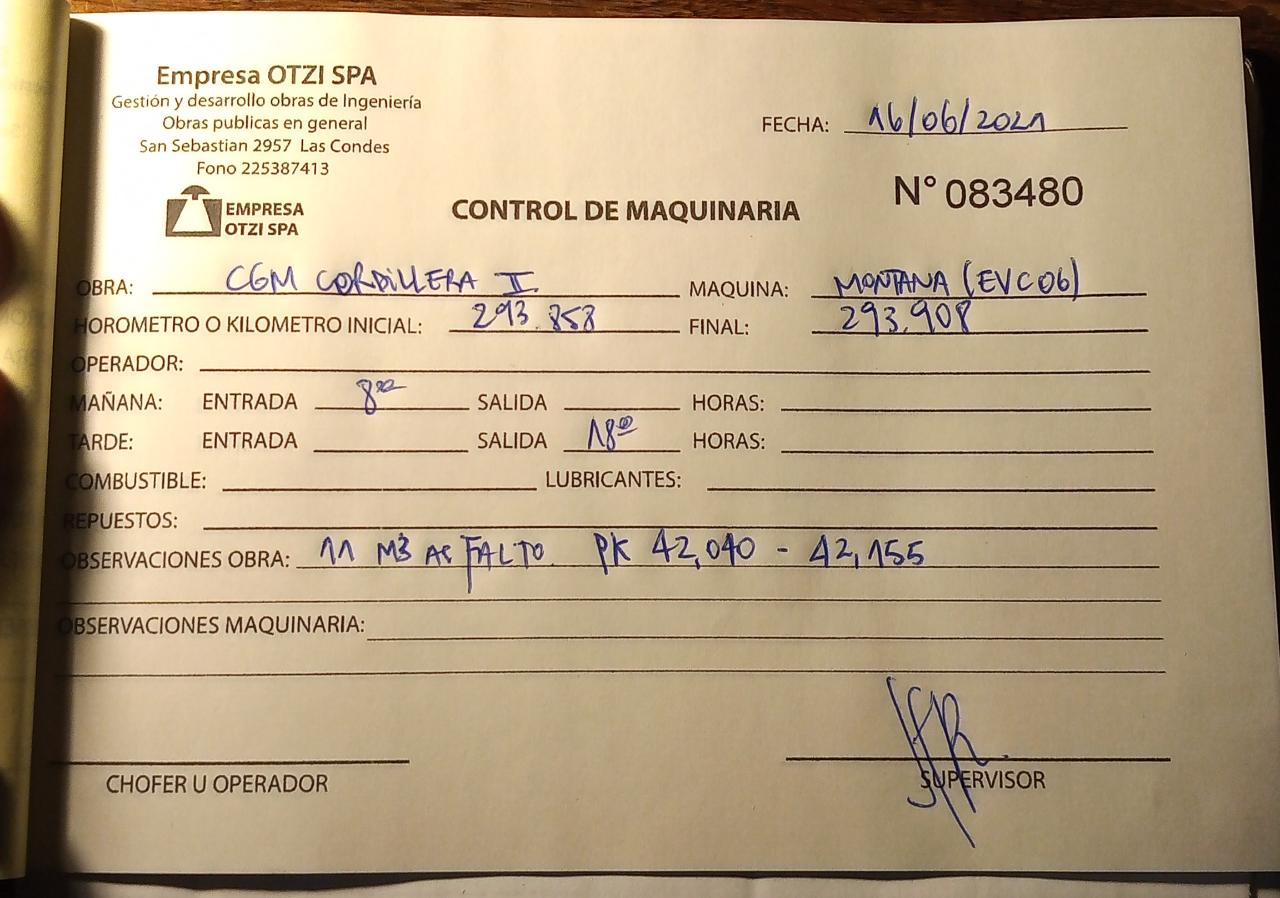 Empresa OTZI SPA
Gestión y desarrollo obras de Ingeniería
Obras publicas en general
San Sebastian 2957 Las Condes
Fono 225387413
EMPRESA
OTZI SPA
FECHA: 16/06/2021
N° 083480
CONTROL DE MAQUINARIA
OBRA: CGM CORDILLERA II. MAQUINA: MONTANA (EVC06)
HOROMETRO O KILOMETRO INICIAL: 293.858 FINAL: 293.908
OPERADOR:
MAÑANA: ENTRADA 8⁰⁰ SALIDA HORAS:
TARDE: ENTRADA SALIDA 18⁰⁰ HORAS:
COMBUSTIBLE: LUBRICANTES:
REPUESTOS:
OBSERVACIONES OBRA: 11 M3 ASFALTO PK 42,040 - 42,155
OBSERVACIONES MAQUINARIA:
CHOFER U OPERADOR
SUPERVISOR